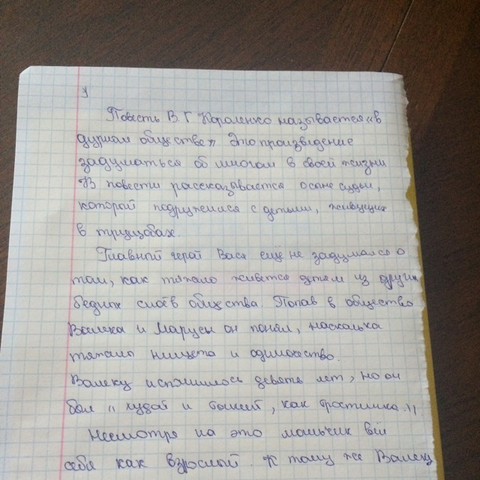 Повесть В Г Короленко называется «в
дурном обществе» Это произведение
задуматься об многом в своей жизни
В повести рассказывается о сыне судьи,
который подружился с детьми, живущих
в трущобах
Главный герой Вася ещё не задумывался о
том, как тяжело живётся детям из других
бедных слоёв общества Попав в общество
Валека и Маруси он понял, насколька
тяжело нищета и одиночество.
Валеку исполнилось девять лет, но он
был „ худой и тонкий, как тростинка."
Несмотря на это мальчик вёл
себя как взрослый. К тому же Валек